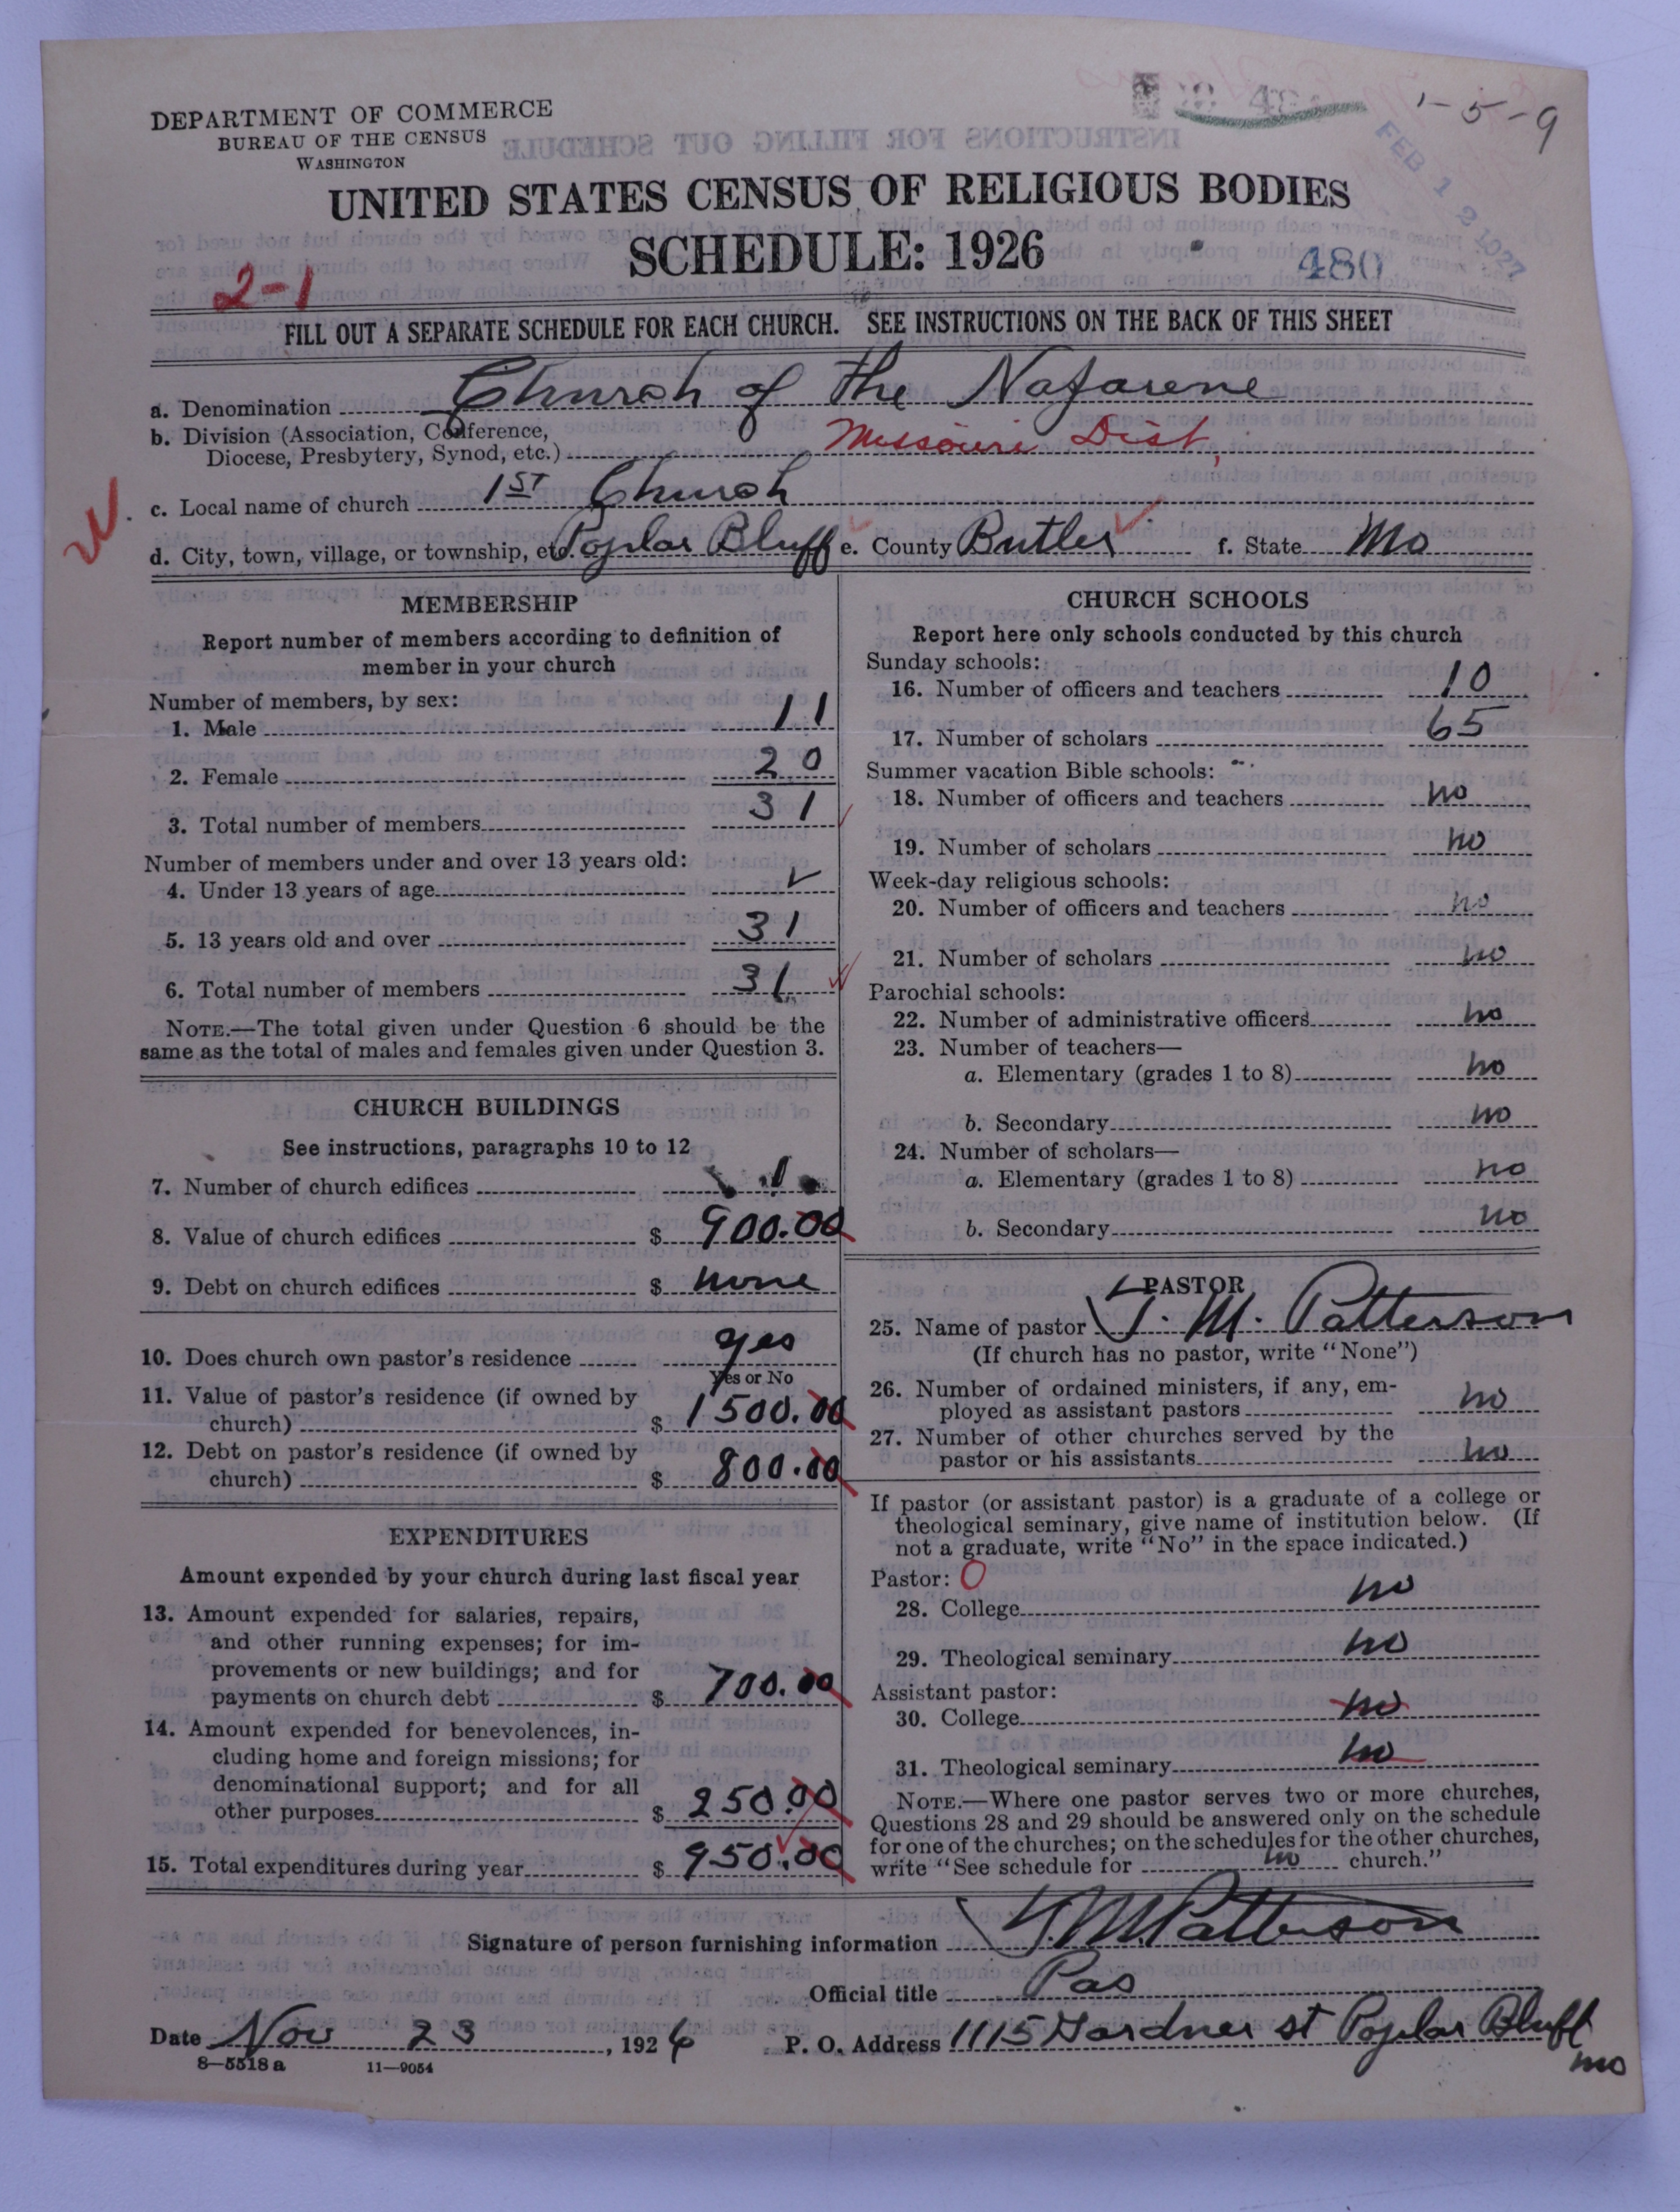 DEPARTMENT OF COMMERCE
BUREAU OF THE CENSUS
WASHINGTON
1-5-9
FEB 12 1927
UNITED STATES CENSUS OF RELIGIOUS BODIES
SCHEDULE: 1926
480
2-1
FILL OUT A SEPARATE SCHEDULE FOR EACH CHURCH. SEE INSTRUCTIONS ON THE BACK OF THIS SHEET
a. Denomination Church of the Nazarene
b. Division (Association, Conference,
Diocese, Presbytery, Synod, etc.) Missouri Dist.
c. Local name of church 1ST Church
d. City, town, village, or township, etc. Poplar Bluff e. County Butler f. State Mo
MEMBERSHIP
Report number of members according to definition of
member in your church
Number of members, by sex:
1. Male 11
2. Female 20
3. Total number of members 31
Number of members under and over 13 years old:
4. Under 13 years of age ✓
5. 13 years old and over 31
6. Total number of members 31
NOTE.—The total given under Question 6 should be the
same as the total of males and females given under Question 3.
CHURCH BUILDINGS
See instructions, paragraphs 10 to 12
7. Number of church edifices 1
8. Value of church edifices $ 900.00
9. Debt on church edifices $ none
10. Does church own pastor's residence yes
Yes or No
11. Value of pastor's residence (if owned by
church) $ 1500.00
12. Debt on pastor's residence (if owned by
church) $ 800.00
EXPENDITURES
Amount expended by your church during last fiscal year
13. Amount expended for salaries, repairs,
and other running expenses; for im-
provements or new buildings; and for
payments on church debt $ 700.00
14. Amount expended for benevolences, in-
cluding home and foreign missions; for
denominational support; and for all
other purposes $ 250.00
15. Total expenditures during year $ 950.00
CHURCH SCHOOLS
Report here only schools conducted by this church
Sunday schools:
16. Number of officers and teachers 10
17. Number of scholars 65
Summer vacation Bible schools:
18. Number of officers and teachers no
19. Number of scholars no
Week-day religious schools:
20. Number of officers and teachers no
21. Number of scholars no
Parochial schools:
22. Number of administrative officers no
23. Number of teachers—
a. Elementary (grades 1 to 8) no
b. Secondary no
24. Number of scholars—
a. Elementary (grades 1 to 8) no
b. Secondary no
PASTOR
25. Name of pastor J. M. Patterson
(If church has no pastor, write "None")
26. Number of ordained ministers, if any, em-
ployed as assistant pastors no
27. Number of other churches served by the
pastor or his assistants no
If pastor (or assistant pastor) is a graduate of a college or
theological seminary, give name of institution below. (If
not a graduate, write "No" in the space indicated.)
Pastor: O
28. College no
29. Theological seminary no
Assistant pastor:
30. College no
31. Theological seminary no
NOTE.—Where one pastor serves two or more churches,
Questions 28 and 29 should be answered only on the schedule
for one of the churches; on the schedules for the other churches,
write "See schedule for no church."
Signature of person furnishing information J. M. Patterson
Official title Pas
Date Nov 23, 1926 P. O. Address 1115 Gardner st Poplar Bluff
mo
8—5518 a 11—9054